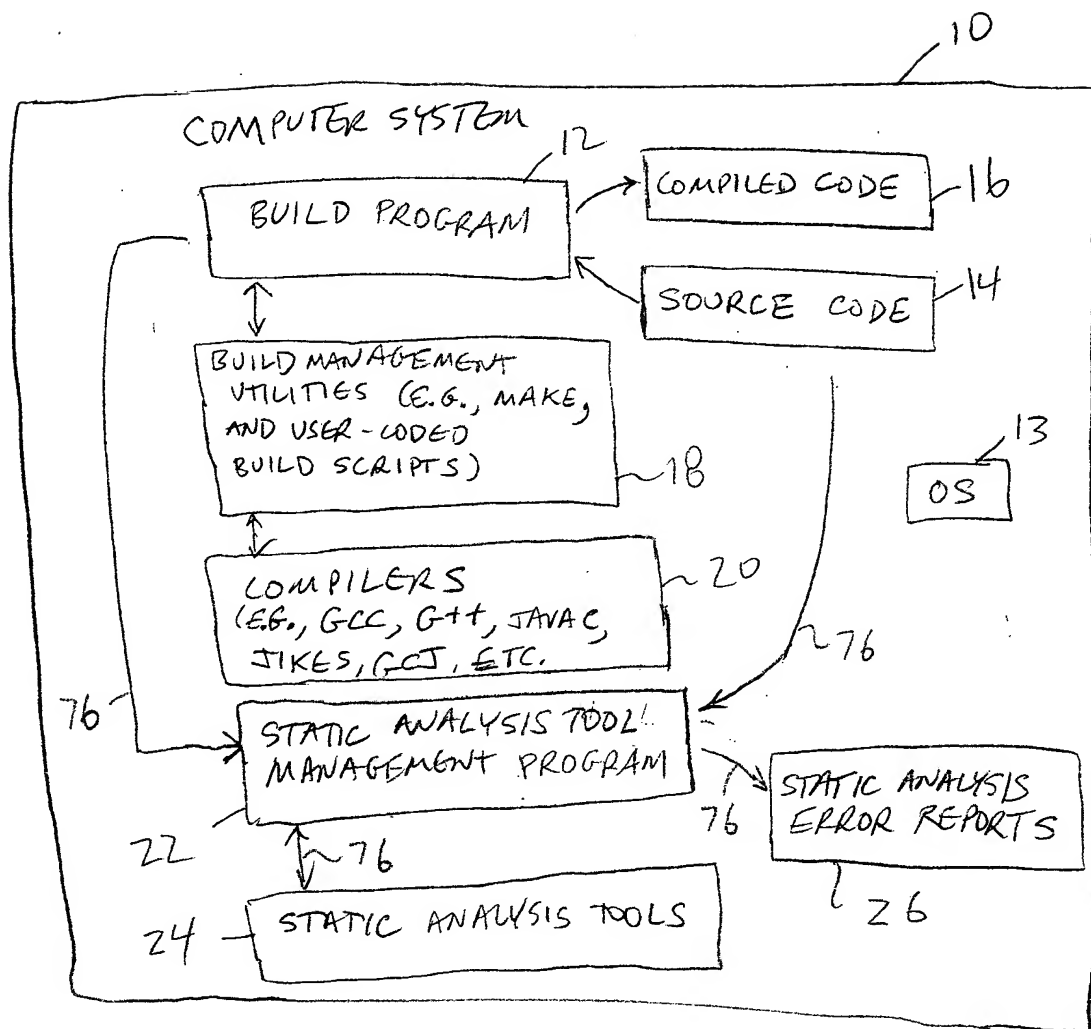 10
COMPUTER SYSTEM
12
BUILD PROGRAM
COMPILED CODE
16
SOURCE CODE
14
BUILD MANAGEMENT
UTILITIES (E.G., MAKE,
AND USER-CODED
BUILD SCRIPTS)
18
13
OS
COMPILERS
(E.G., GCC, G++, JAVAC,
JIKES, GCJ, ETC.
20
76
76
STATIC ANALYSIS TOOL
MANAGEMENT PROGRAM
22
76
STATIC ANALYSIS
ERROR REPORTS
26
76
24
STATIC ANALYSIS TOOLS